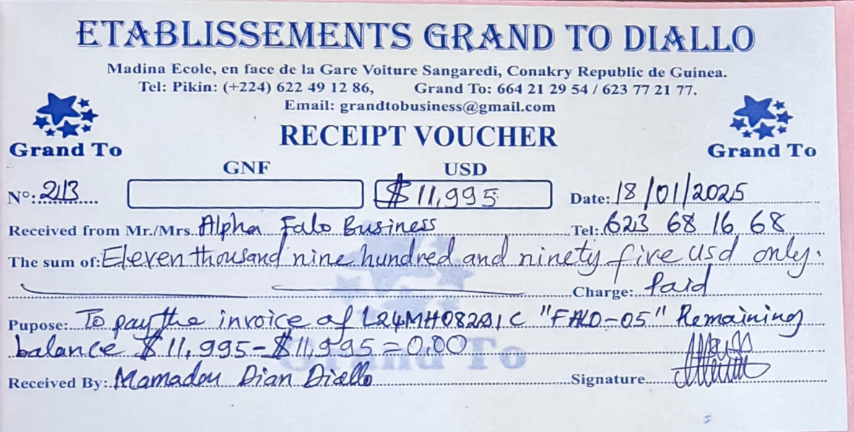 ETABLISSEMENTS GRAND TO DIALLO
Madina Ecole, en face de la Gare Voiture Sangaredi, Conakry Republic de Guinea.
Tel: Pikin: (+224) 622 49 12 86, Grand To: 664 21 29 54 / 623 77 21 77.
Email: grandtobusiness@gmail.com
Grand To RECEIPT VOUCHER Grand To
GNF USD
N°: 213 $ 11,995 Date: 18/01/2025
Received from Mr./Mrs. Alpha Falo Business Tel: 623 68 16 68
The sum of: Eleven thousand nine hundred and ninety five usd only.
Charge: Paid
Pupose: To pay the invoice of L24MH08201C "FALO-05" Remaining
balance $11,995-$11,995=0.00
Received By: Mamadou Dian Diallo Signature
Grand To